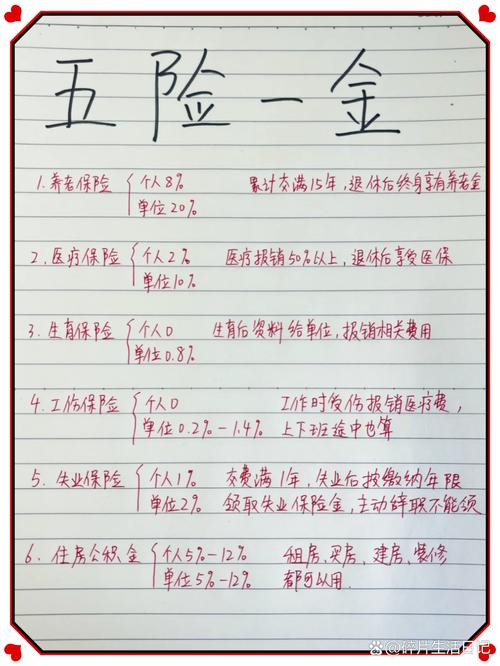 五险一金
1.养老保险 { 个人8% 累计交满15年,退休后终身享有养老金
单位20%
2.医疗保险 { 个人2% 医疗报销50%以上,退休后享受医保
单位10%
3.生育保险 { 个人0 生育后资料给单位,报销相关费用
单位0.8%
4.工伤保险 { 个人0 工作时受伤报销医疗费,
单位0.2%-1.4% 上下班途中也算
5.失业保险 { 个人1% 交费满1年,失业后按缴纳年限
单位2% 领取失业保险金,主动辞职不能领
6.住房公积金 { 个人5%-12% 租房、买房、建房、装修
单位5%-12% 都可以用.
碎片生活日记